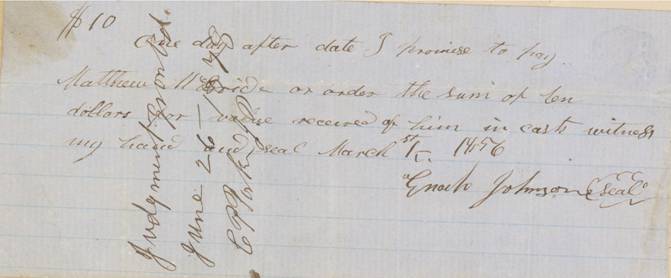 $10
One day after date I promise to pay
Matthew McBride or order the sum of ten
dollars for value received of him in cash witness
my hand and seal March 1st 1876
Enoch Johnson (seal)
Judgment Granted.
June 26 - 1878